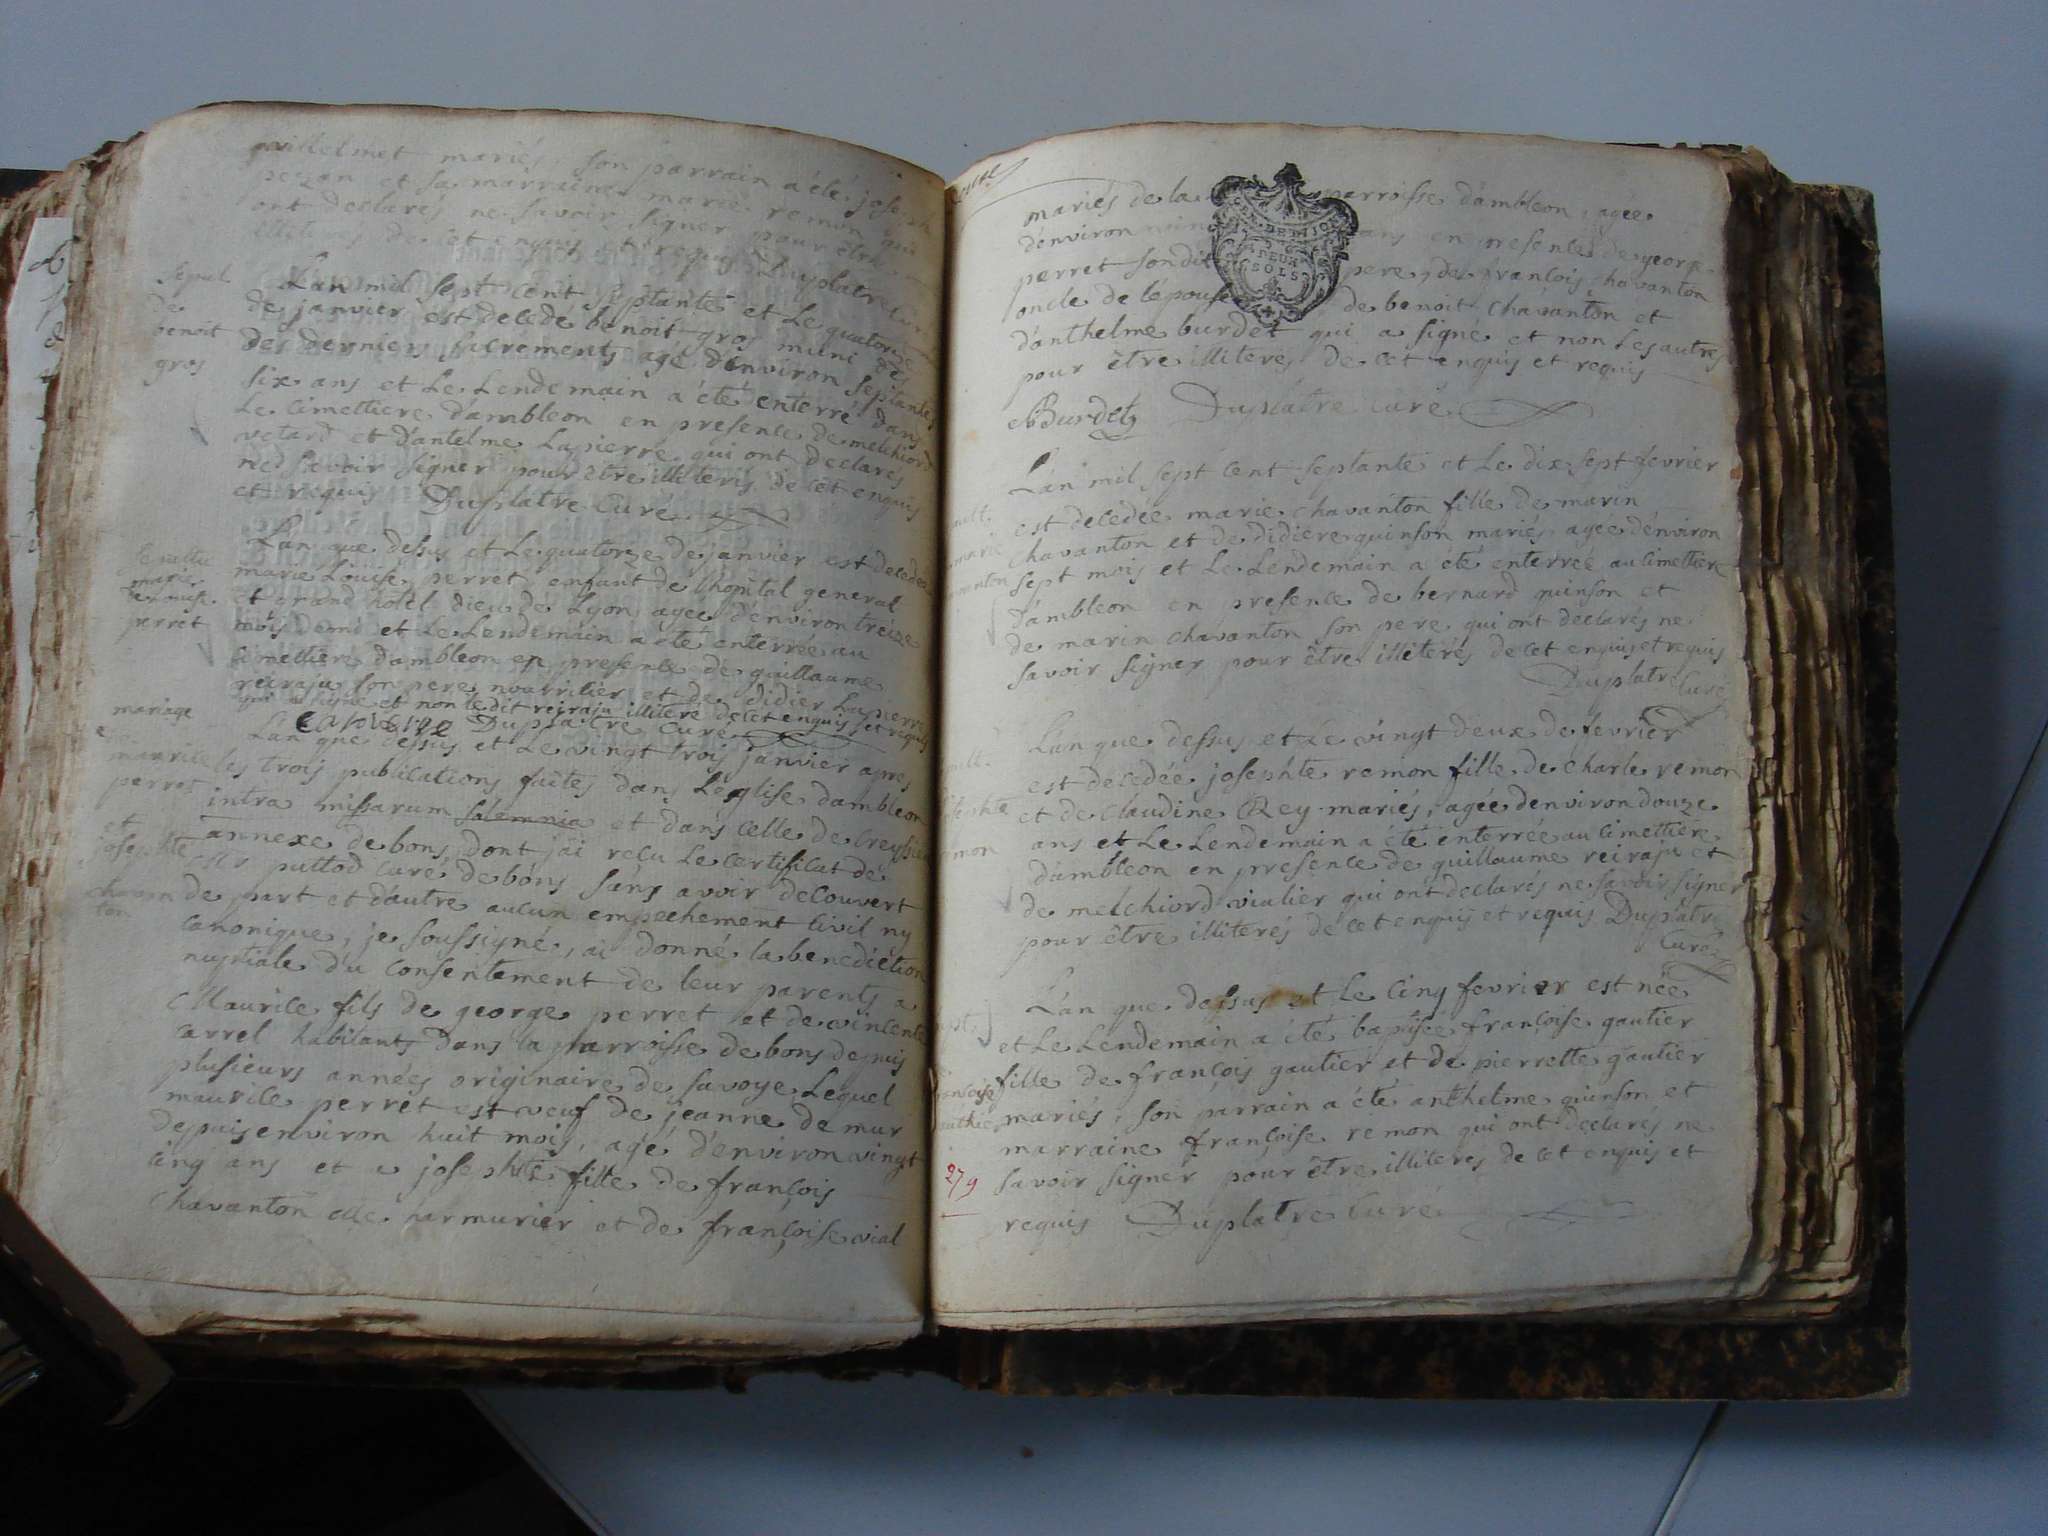 guillelmet mariés, son parrain a été joseph
pezan et sa marraine marie remon qui
ont declarés ne savoir signer pour être
illiterés de cet enquis et requis Duplatre Curé
sepul
de
benoit
gros
Lan mil sept cent septante et Le quatorze
de janvier est decedé benoit gros muni des
des derniers sacrements agé d'environ septante
six ans et Le Lendemain a été enterré dans
Le cimettiere d'ambleon en presence de melchiord
vetard et d'antelme Lapierre qui ont declarés
ne savoir signer pour être illiterés de cet enquis
et requis Duplatre Curé
sepultu
marie
Louise
perret
L'an que dessus et Le quatorze de janvier est decedée
marie Louise perret enfant de l'hopital general
et grand hotel dieu de Lyon agée d'environ treize
mois demi et Le Lendemain a été enterrée au
cimettiere d'ambleon en presence de guillaume
reiraju son pere nourricier et de didier Lapierre
qui a signé et non le dit reiraju illiteré de cet enquis et requis
Lapierre Duplatre Curé
mariage
maurice
perret
et
josephte
chavanton
L'an que dessus et Le vingt trois janvier apres
les trois publications faites dans Leglise dambleon
intra missarum solemnia et dans celle de Creyssieu
annexe de bons dont j'ai reçu Le certificat de
Mr puttod curé de bons sans avoir decouvert
de part et d'autre aucun empechement civil ny
canonique, je soussigné, ai donné la benediction
nuptiale du consentement de leur parents a
Maurice fils de george perret et de vincente
arrel habitants dans la parroisse de bons depuis
plusieurs années originaire de savoye Lequel
maurice perret est veuf de jeanne de mur
depuis environ huit mois, agé d'environ vingt
cinq ans et a josephte fille de françois
chavanton armurier et de françoise vial
mariés de la parroisse d'ambleon, agée
d'environ ans en presence de george
perret son dit pere, de françois chavanton
oncle de l'épouse de benoit chavanton et
d'anthelme burdet qui a signé et non Les autres
pour être illiterés de cet enquis et requis
DEUX
SOLS
ABurdet Duplatre Curé
L'an mil sept cent septante et Le dix sept fevrier
est decedée marie chavanton fille de marin
chavanton et de didiere quinson mariés agée d'environ
sept mois et Le Lendemain a été enterrée au cimettiere
d'ambleon en presence de bernard quinson et
de marin chavanton son pere qui ont declarés ne
savoir signer pour être illiterés de cet enquis et requis
Duplatre Curé
L'an que dessus et Le vingt deux de fevrier
est decedée josephte remon fille de charle remon
et de claudine Rey mariés, agée denviron douze
ans et Le Lendemain a été enterrée au cimettiere
d'ambleon en presence de guillaume reiraju et
de melchiord vialier qui ont declarés ne savoir signer
pour être illiterés de cet enquis et requis Duplatre
Curé
françoise
gauthier
L'an que dessus et Le cinq fevrier est née
et Le Lendemain a été baptisée françoise gautier
fille de françois gautier et de pierrette gautier
mariés, son parrain a été anthelme quinson et
marraine françoise remon qui ont declarés ne
savoir signer pour être illiterés de cet enquis et
requis Duplatre Curé
279